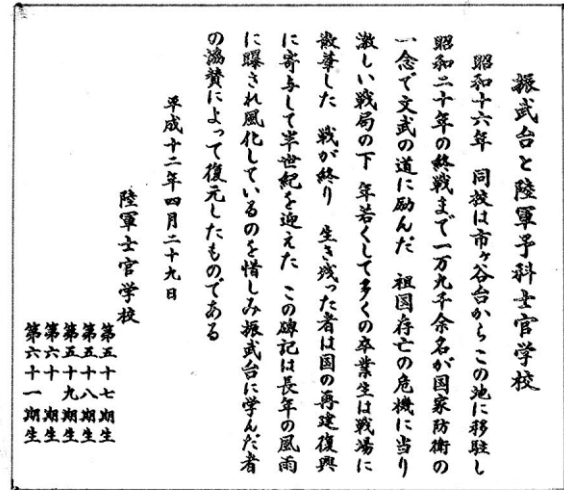 振武台と陸軍予科士官学校
昭和十六年 同校は市ヶ谷台からこの地に移駐し
昭和二十年の終戦まで一万九千余名が国家防衛の
一念で文武の道に励んだ 祖国存亡の危機に当り
激しい戦局の下 年若くして多くの卒業生は戦場に
散華した 戦が終り 生き残った者は国の再建復興
に寄与して半世紀を迎えた この碑記は長年の風雨
に曝され風化しているのを惜しみ振武台に学んだ者
の協賛によって復元したものである
平成十二年四月二十九日
陸軍士官学校
第五十七期生
第五十八期生
第五十九期生
第六十期生
第六十一期生